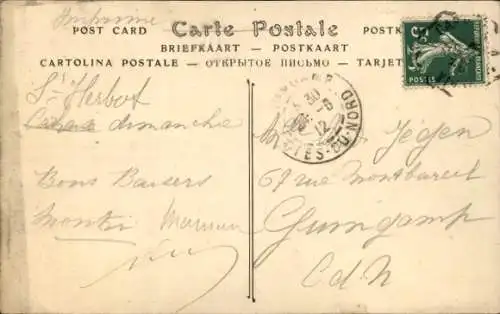 Imprimé
POST CARD Carte Postale POSTK
BRIEFKAART — POSTKAART
CARTOLINA POSTALE — ОТКРЫТОЕ ПИСЬМО — TARJET
5
POSTES
30
12
DU-NORD
St Herbot
dimanche
Bons Baisers
Maman
67 rue Montbareil
Guingamp
C d N